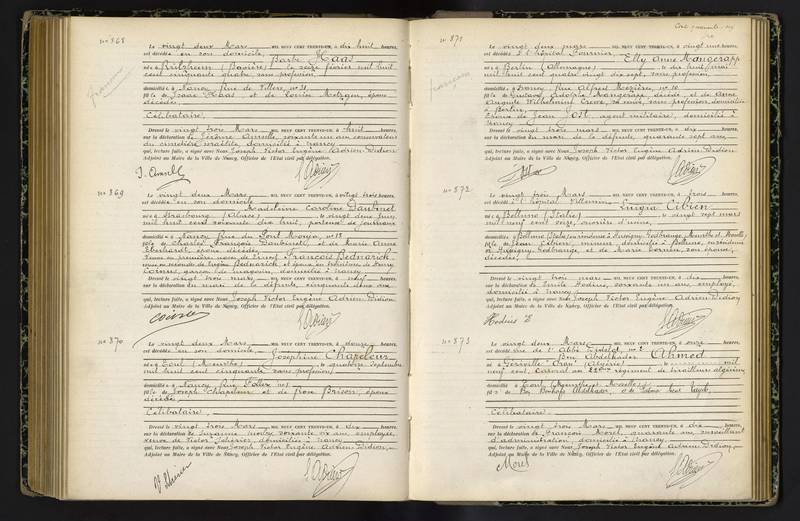 N° 868
Le vingt deux Mars, MIL NEUF CENT TRENTE-UN, à dix huit heures,
est décédée en son domicile, Barbe Haas
née à (Bavière) le seize février mil huit
cent cinquante quatre, sans profession,
domiciliée à Nancy, rue de Villers, n° 31,
fille de Isaac Haas et de Metzger, époux
décédés,
Célibataire.
Dressé le vingt trois Mars, MIL NEUF CENT TRENTE-UN, à huit heures,
sur la déclaration de soixante un ans, conservateur
du cimetière israélite, domicilié à Nancy
qui, lecture faite, a signé avec Nous, Joseph Victor Eugène Adrien Didion
Adjoint au Maire de la Ville de Nancy, Officier de l'Etat civil par délégation.
N° 869
Le vingt deux Mars, MIL NEUF CENT TRENTE-UN, à vingt trois heures,
est décédée en son domicile
Madeleine Caroline Daubinet
née à Strasbourg (Alsace), le vingt deux juin
mil huit cent soixante dix huit, porteuse de journaux
domiciliée à Nancy, rue du Pont Mouja, n° 18
fille de Charles François Daubinet, et de Marie Anne
Eberhardt, époux décédés,
Veuve en premières noces de François Bednarick
et épouse en troisièmes de Henry
garçon de magasin, domicilié à Nancy
Dressé le vingt trois Mars, MIL NEUF CENT TRENTE-UN, à neuf heures,
sur la déclaration du mari de la défunte, cinquante deux ans
qui, lecture faite, a signé avec Nous, Joseph Victor Eugène Adrien Didion
Adjoint au Maire de la Ville de Nancy, Officier de l'Etat civil par délégation.
N° 870
Le vingt deux Mars, MIL NEUF CENT TRENTE-UN, à douze heures,
est décédée en son domicile Joséphine Chapeleur
née à Toul (Meurthe) le quatre septembre
mil huit cent cinquante, sans profession
domiciliée à Nancy, rue
fille de Joseph Chapeleur et de Brison, époux
décédés
Célibataire.
Dressé le vingt trois Mars, MIL NEUF CENT TRENTE-UN, à dix heures,
sur la déclaration de Suzanne soixante six ans, employée,
veuve de Victor domiciliée à Nancy
qui, lecture faite, a signé avec Nous, Joseph Victor Eugène Adrien Didion
Adjoint au Maire de la Ville de Nancy, Officier de l'Etat civil par délégation.
N° 871
Le vingt deux mars, MIL NEUF CENT TRENTE-UN, à vingt une heures,
est décédée à l'hôpital Fournier, Elly Anne Mangerapp
née à Berlin (Allemagne) le dix huit mai
mil huit cent quatre vingt dix sept, sans profession,
domiciliée à Nancy, rue Alfred Mézières, n° 10
fille de Gustave Adolphe Mangerapp, décédé et de Anne
Auguste Wilhelmine sa veuve, sans profession, domiciliée
à Berlin,
Epouse de Jean agent militaire, domicilié à
Nancy
Dressé le vingt trois mars, MIL NEUF CENT TRENTE-UN, à dix heures,
sur la déclaration du mari de la défunte, quarante sept ans,
qui, lecture faite, a signé avec Nous, Joseph Victor Eugène Adrien Didion
Adjoint au Maire de la Ville de Nancy, Officier de l'Etat civil par délégation.
N° 872
Le vingt trois Mars, MIL NEUF CENT TRENTE-UN, à trois heures,
est décédé à l'hôpital Villemin, Luigia Cibien
née à Bellune (Italie) le vingt sept mars
mil neuf cent onze, ouvrière d'usine,
domiciliée à Bellune (Italie) en résidence à Hussigny-Godbrange, Meurthe et Moselle,
fille de Jean Cibien, mineur, domicilié à Bellune, en résidence
à Hussigny Godbrange, et de Marie son épouse,
décédée,
Dressé le vingt trois mars, MIL NEUF CENT TRENTE-UN, à heures,
sur la déclaration de Emile Hodius, soixante un ans, employé,
domicilié à Nancy
qui, lecture faite, a signé avec Nous, Joseph Victor Eugène Adrien Didion
Adjoint au Maire de la Ville de Nancy, Officier de l'Etat civil par délégation.
Hodius E
N° 873
Le vingt deux Mars, MIL NEUF CENT TRENTE-UN, à onze heures,
est décédé rue de l'Abbé Didelot, n° 1
Ben Abdelkader Ahmed
né à Géryville, Oran (Algérie) mil
neuf cent, Caporal au 22ème régiment de tirailleurs algériens
domicilié à Toul (Meurthe et Moselle)
fils de Ben
Célibataire.
Dressé le vingt trois Mars, MIL NEUF CENT TRENTE-UN, à dix heures,
sur la déclaration de François Morel, quarante ans, surveillant
d'administration, domicilié à Nancy
qui, lecture faite, a signé avec Nous, Joseph Victor Eugène Adrien Didion
Adjoint au Maire de la Ville de Nancy, Officier de l'Etat civil par délégation.
Morel